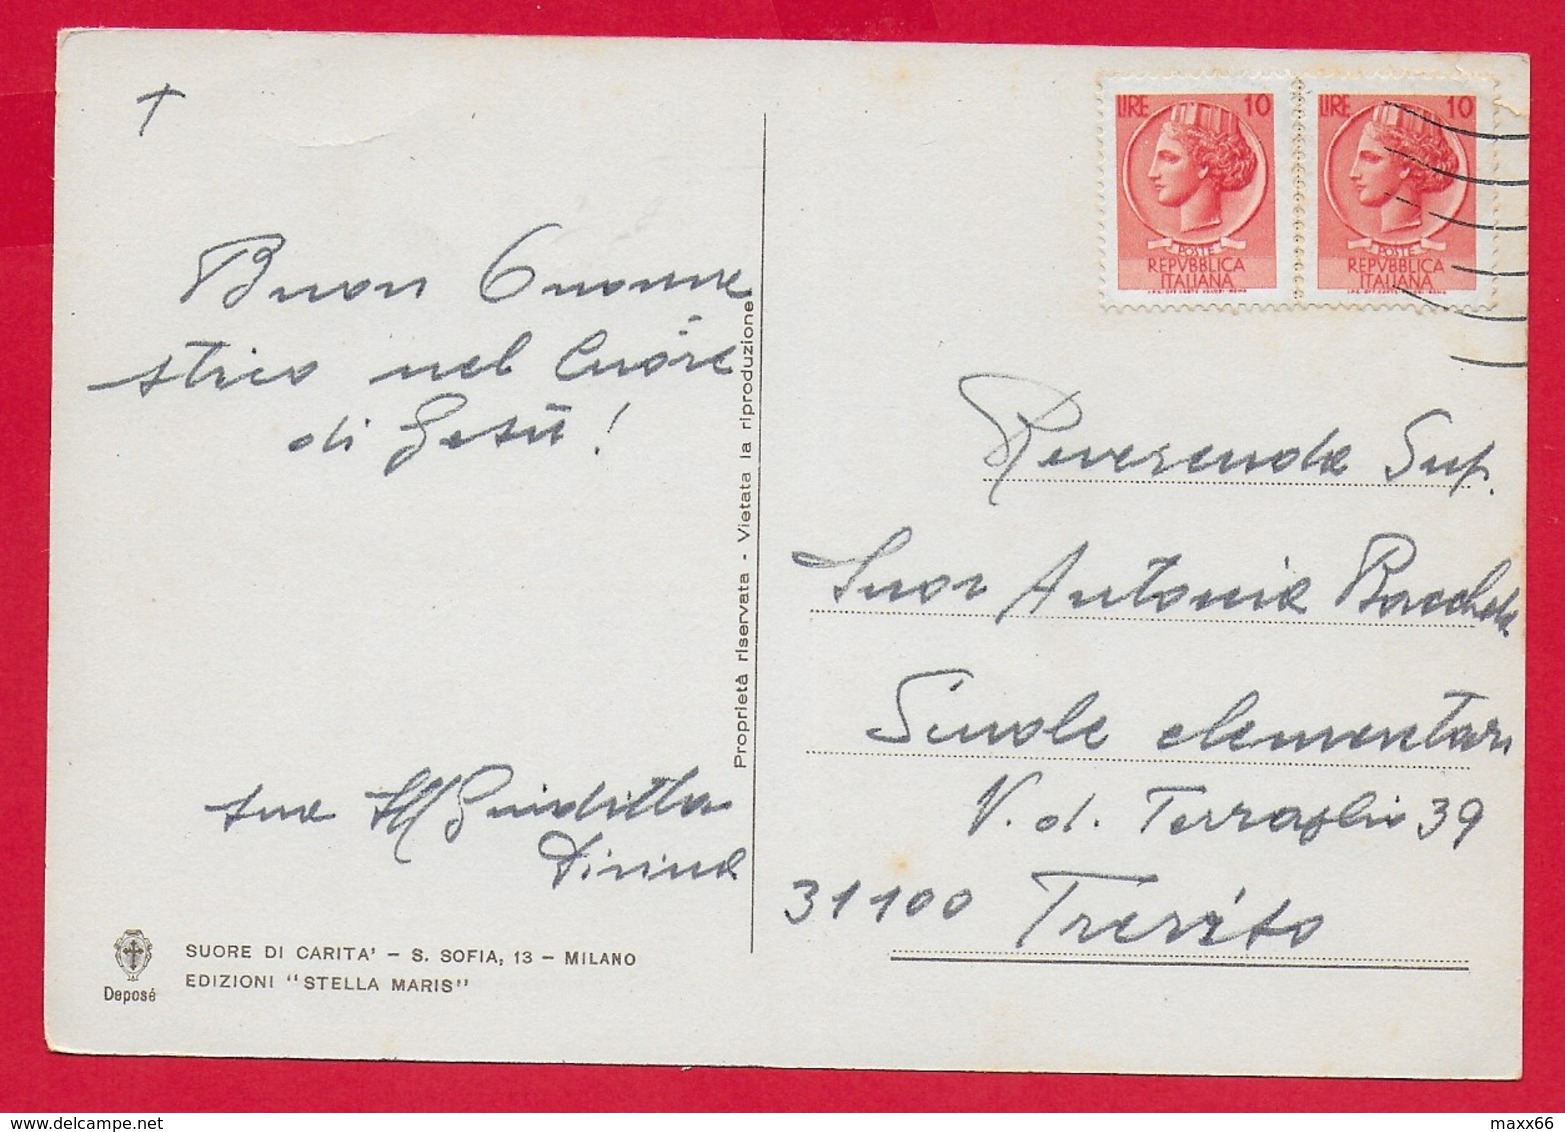 Buon Onoma
stico nel Cuore
di Gesù!
sua
Giuditta
Divina
SUORE DI CARITA' - S. SOFIA, 13 - MILANO
EDIZIONI "STELLA MARIS"
Deposé
Proprietà riservata - Vietata la riproduzione
LIRE 10
POSTE
REPVBBLICA
ITALIANA
LIRE 10
POSTE
REPVBBLICA
ITALIANA
Reverenda Sup.
Suor Antonia
Scuole elementari
V. d. Terraglio 39
31100 Treviso
delcampe.net
maxx66